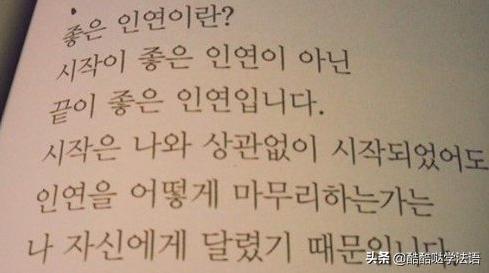 좋은 인연이란?
시작이 좋은 인연이 아닌
끝이 좋은 인연입니다.
시작은 나와 상관없이 시작되었어도
인연을 어떻게 마무리하는가는
나 자신에게 달렸기 때문입니다.
头条 @酷酷哒学法语